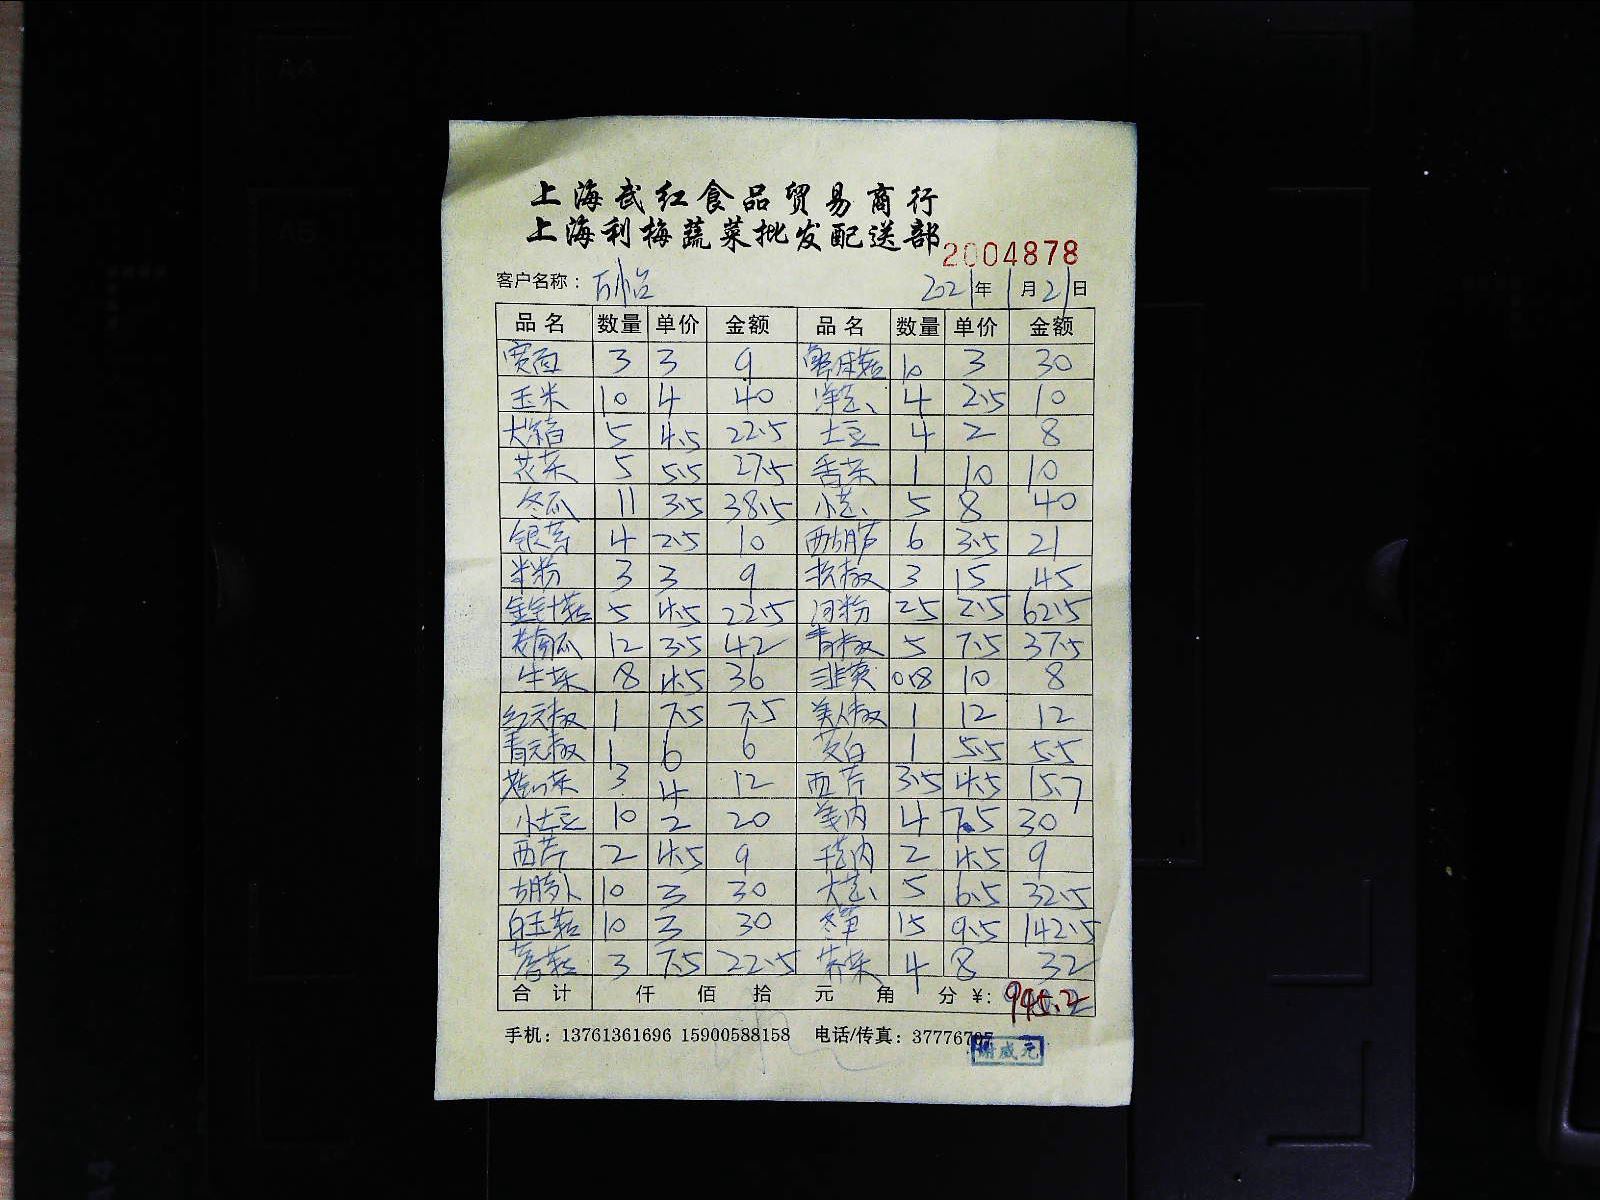 上海武红食品贸易商行
上海利梅蔬菜批发配送部
2004878
客户名称： 2021年1月21日
品名 数量 单价 金额 品名 数量 单价 金额
宽面 3 3 9 蟹味菇 10 3 30
玉米 10 4 40 洋芋、 4 2.5 10
5 4.5 22.5 土豆 4 2 8
花菜 5 5.5 27.5 香菜 1 10 10
冬瓜 11 3.5 38.5 5 8 40
银芽 4 2.5 10 西葫芦 6 3.5 21
米粉 3 3 9 3 15 45
金针菇 5 4.5 22.5 河粉 25 2.5 62.5
老南瓜 12 3.5 42 青椒 5 7.5 37.5
生菜 8 4.5 36 韭黄 0.8 10 8
红元椒 1 7.5 7.5 美人椒 1 12 12
青元椒 1 6 6 茭白 1 5.5 5.5
3 4 12 西芹 3.5 4.5 15.7
小土豆 10 2 20 姜肉 4 7.5 30
西芹 2 4.5 9 2 4.5 9
胡萝卜 10 3 30 5 6.5 32.5
白玉菇 10 3 30 冬笋 15 9.5 142.5
香菇 3 7.5 22.5 荠菜 4 8 32
合计 仟 佰 拾 元 角 分 ¥: 945.2
手机：13761361696 15900588158 电话/传真：37776707
谢威元